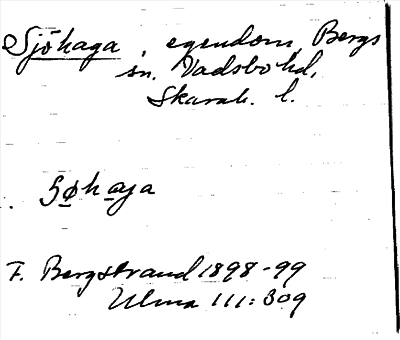 Sjöhaga, egendom, Bergs
sn. Vadsbo hd,
Skarab. l.
Søhaga
F. Bergstrand 1898-99
Ulma 111:309